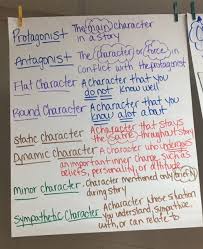 Protagonist The main character
in a story
Antagonist The character or force in
conflict with the protagonist
Flat Character A character that you
do not know well
Round Character A character that you
know alot about
static character A character that stays
the same throughout story
Dynamic character A character who undergoes
an important inner change, such as
beliefs, personality, or attitude
minor character - character mentioned only briefly
during story
Sympathetic Character A character whose situation
you understand, sympathize
with, or can relate to